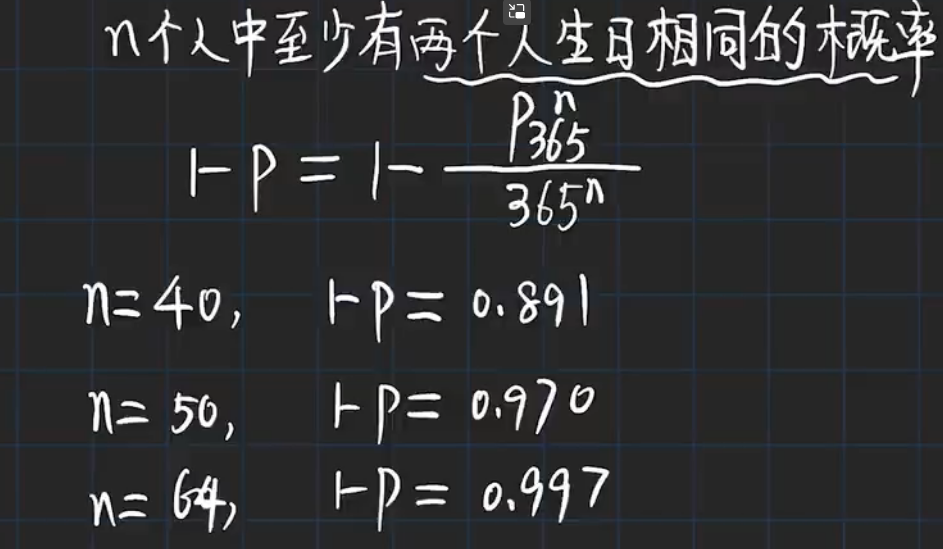 n个人中至少有两个人生日相同的概率
1-P = 1- P₃₆₅ⁿ / 365ⁿ
n=40, 1-P= 0.891
n= 50, 1-P= 0.970
n= 64, 1-P= 0.997